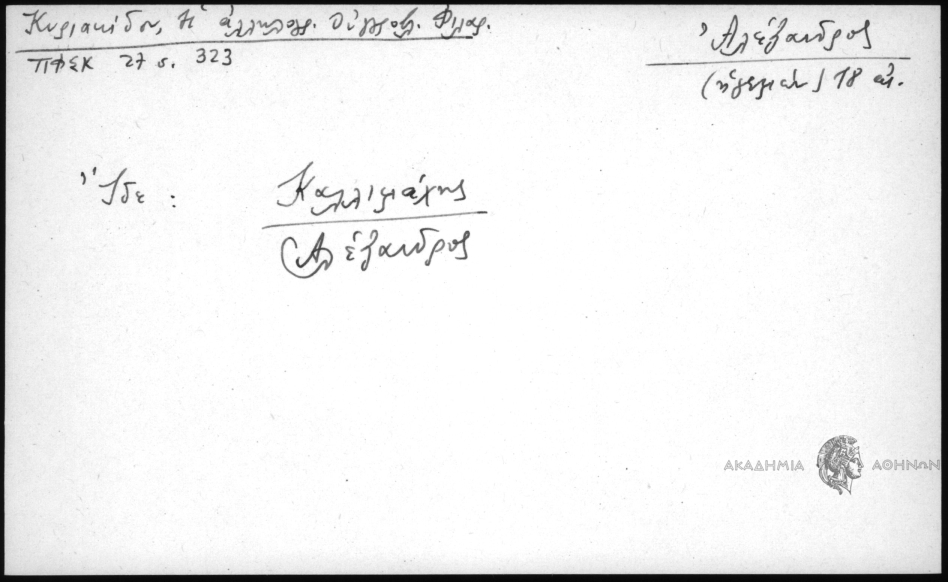 Κυριακίδου, Ἡ ἀλληλογρ. Οὑγγροβλ. Φιλαρ.
ΠΦΣΚ 27 σ. 323
Ἀλέξανδρος
(ἡγεμών) 18 αἰ.
Ἴδε : Καλλιμάχης
Ἀλέξανδρος
ΑΚΑΔΗΜΙΑ ΑΘΗΝΩΝ